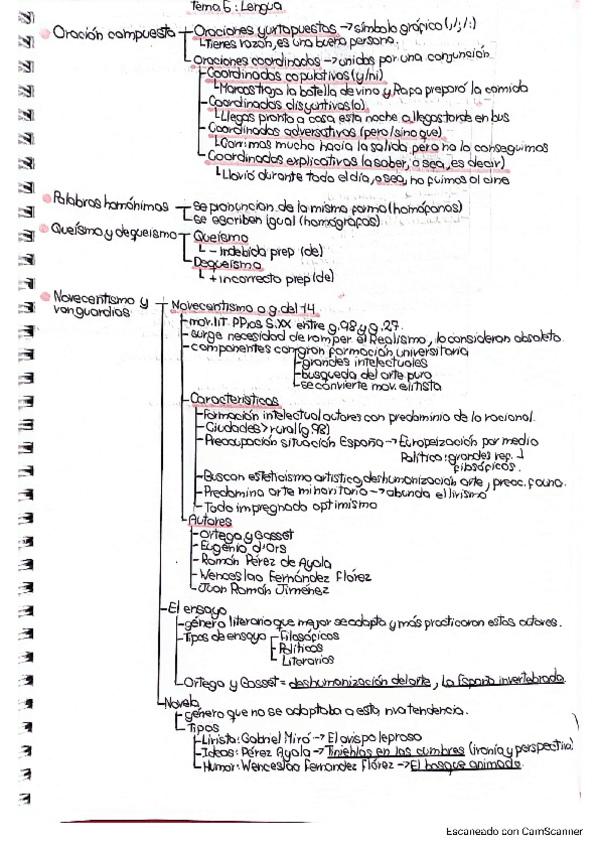 Tema 6: Lengua
Oración compuesta
Oraciones yuxtapuestas → símbolo gráfico (,/;/:)
Tienes razón, es una buena persona.
Oraciones coordinadas → unidas por una conjunción
Coordinadas copulativas (y/ni)
Marcos trajo la botella de vino y Rapa preparó la comida
Coordinadas disyuntivas (o)
Llegas pronto a casa esta noche o llegas tarde en bus
Coordinadas adversativas (pero/sino que)
Corrimos mucho hacia la salida pero no la conseguimos
Coordinadas explicativas (a saber, o sea, es decir)
Llovió durante todo el día, o sea, no fuimos al cine
Palabras homónimas
se pronuncian de la misma forma (homófonos)
se escriben igual (homógrafos)
Queísmo y dequeísmo
Queísmo
- indebida prep (de)
Dequeísmo
+ incorrecto prep (de)
Novecentismo y vanguardias
Novecentismo o g. del 14
mov. lit. PPios S.XX entre g.98 y g.27.
surge necesidad de romper el Realismo, lo consideran obsoleto.
componentes con gran formación universitaria
grandes intelectuales
busqueda del arte puro
se convierte mov. elitista
Características
Formación intelectual autores con predominio de lo racional.
Ciudades > rural (g.98)
Preocupación situación España → Europeización por medio
Política: grandes rep.
filosóficos.
Buscan esteticismo artístico, deshumanización arte, preoc. forma.
Predomina arte minoritario → abunda el lirismo
Todo impregnado optimismo
Autores
Ortega y Gasset
Eugenio d'Ors
Ramón Pérez de Ayala
Wenceslao Fernández Flórez
Juan Ramón Jiménez
El ensayo
género literario que mejor se adapta y más practicaron estos autores.
Tipos de ensayo
Filosóficos
Políticos
Literarios
Ortega y Gasset = deshumanización del arte, La España invertebrada.
Novela
género que no se adaptaba a esta nva tendencia.
Tipos
Lirista: Gabriel Miró → El obispo leproso
Ideas: Pérez Ayala → Tinieblas en las cumbres (ironía y perspectiva)
Humor: Wenceslao Fernandez Flórez → El bosque animado.
Escaneado con CamScanner